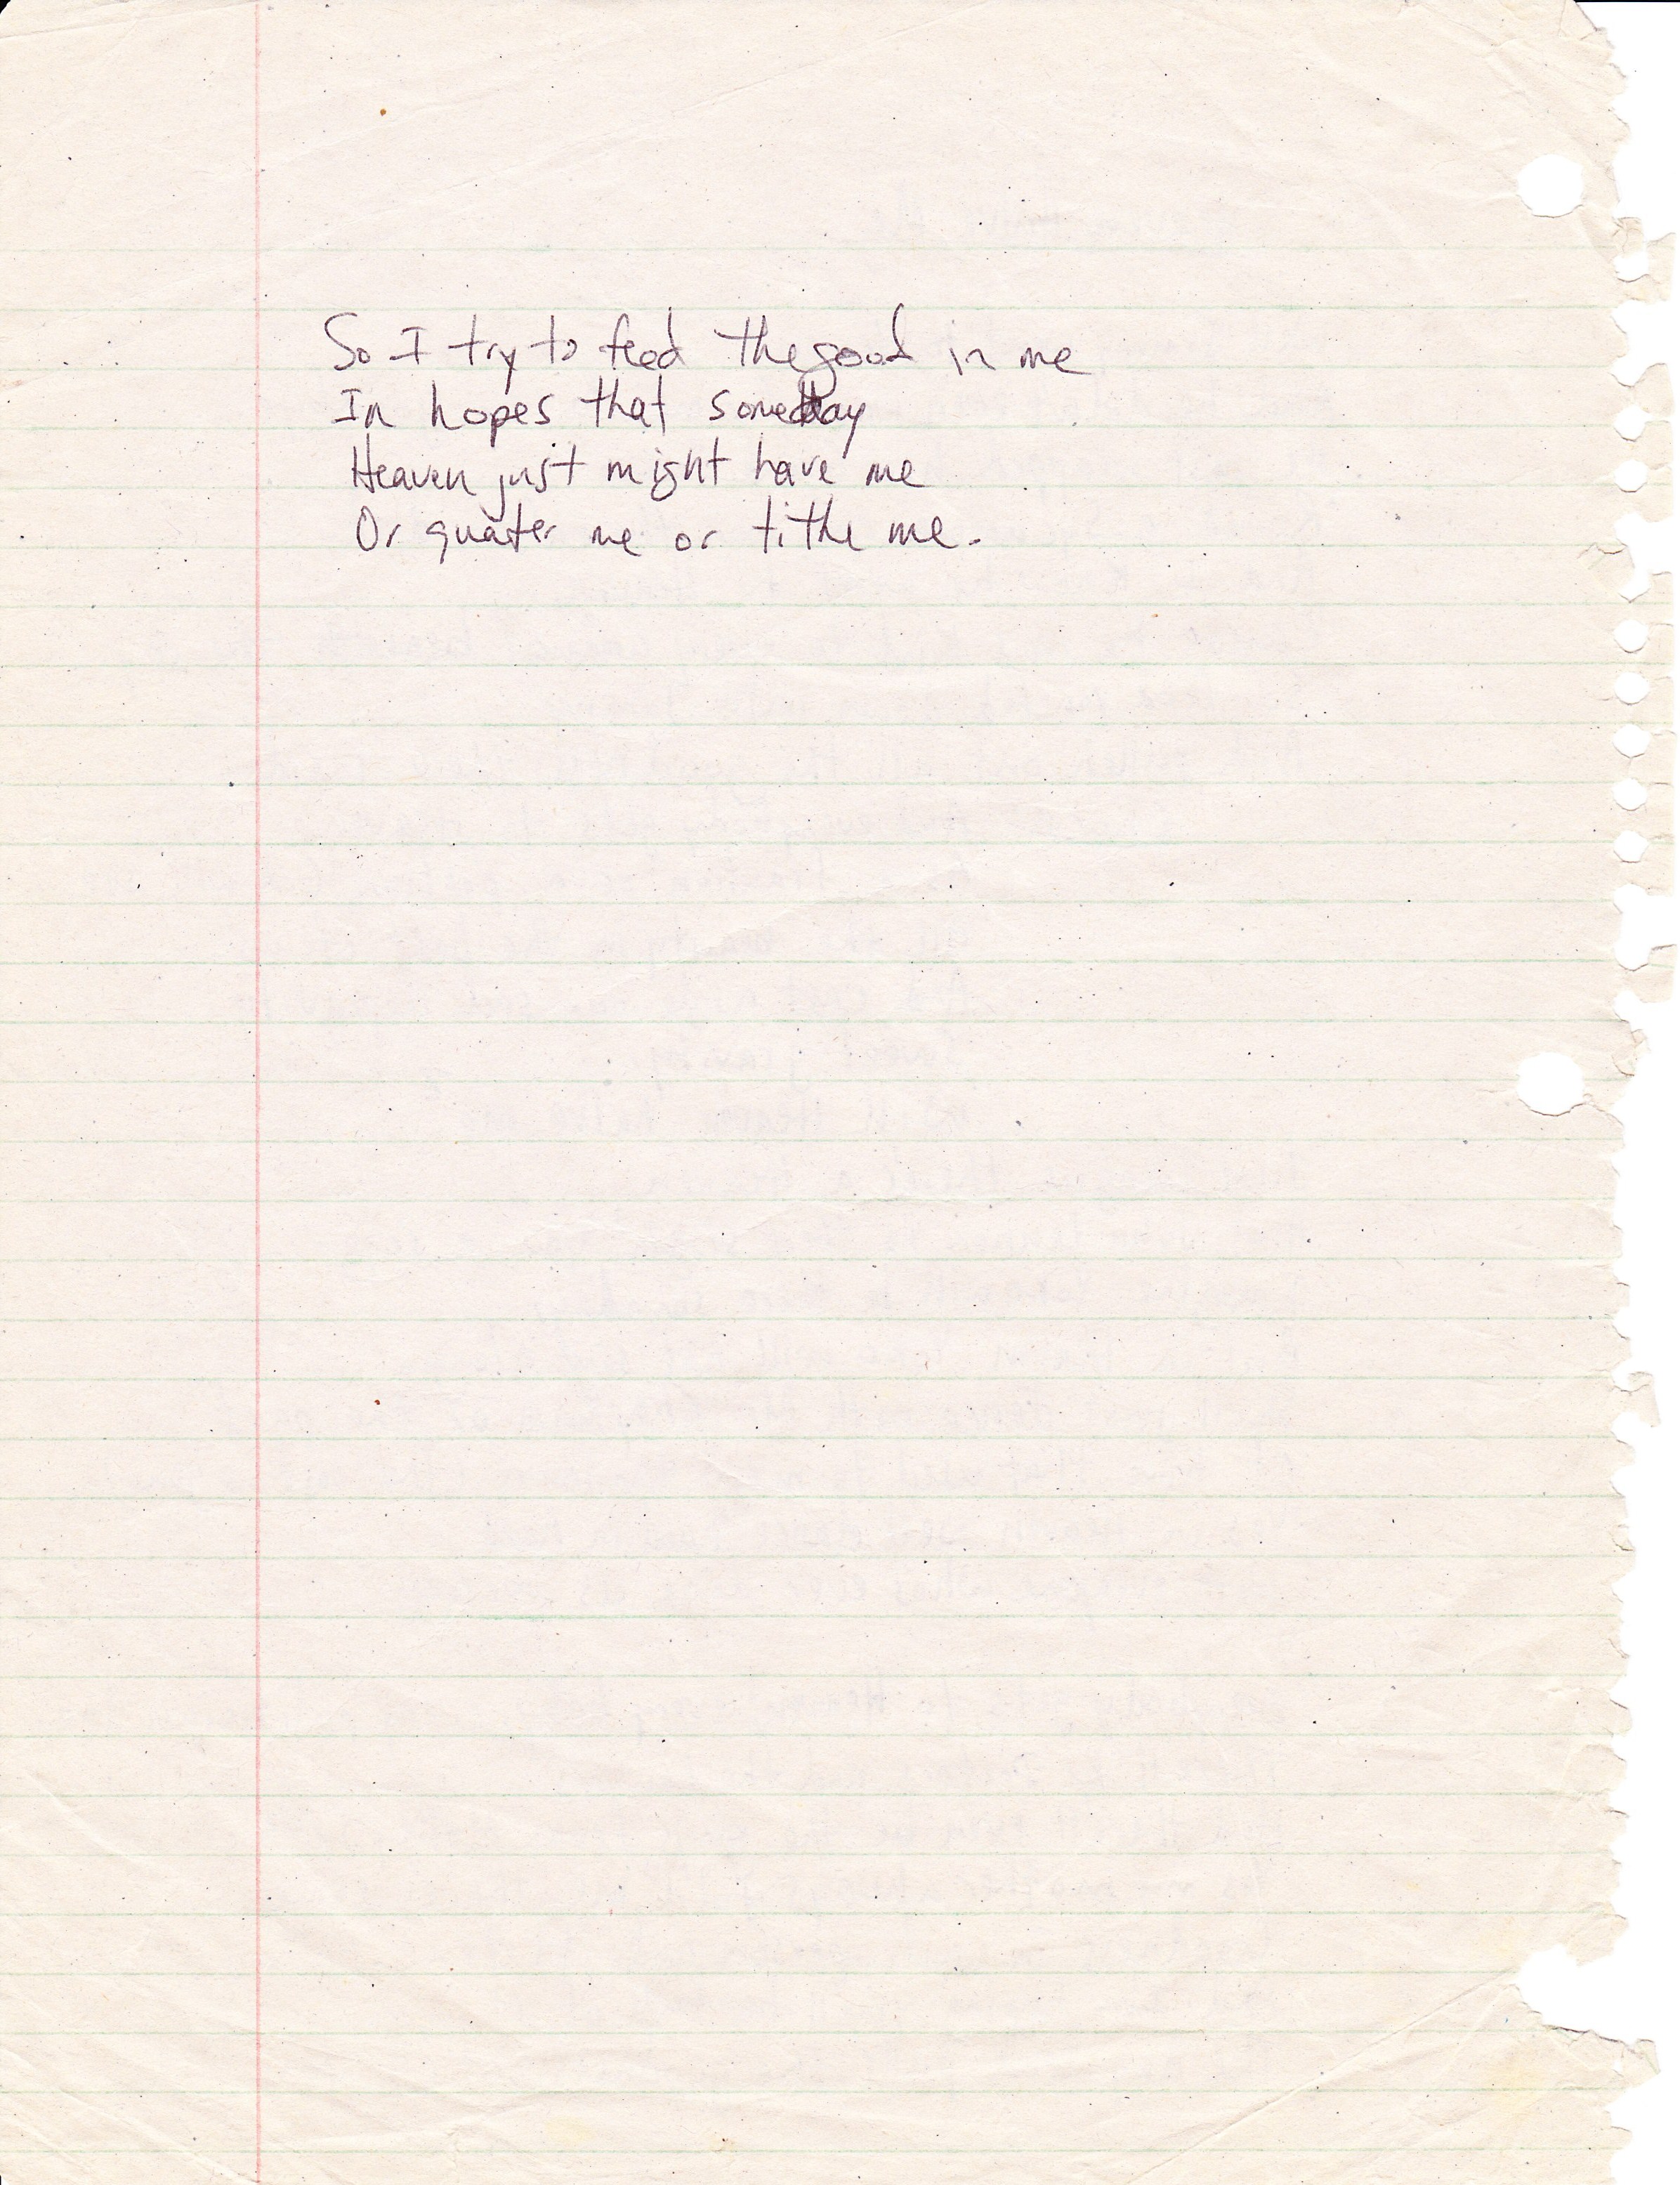 So I try to feed the good in me
In hopes that someday
Heaven just might have me
Or quater me or tithe me.